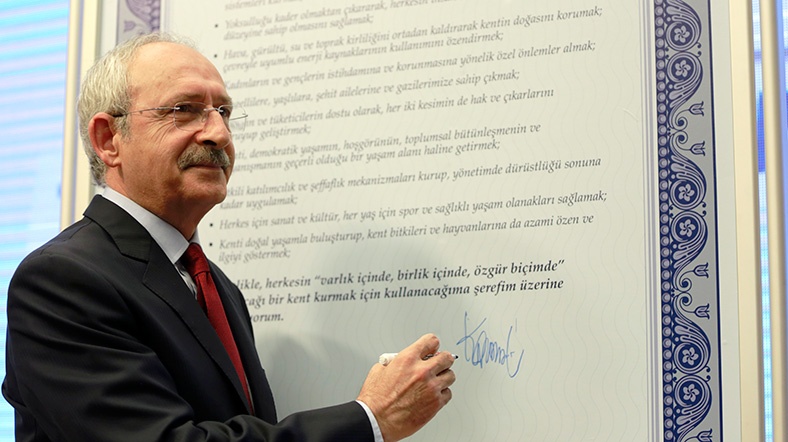 sistemleri
• Yoksulluğu kader olmaktan çıkararak, herkesin
düzeyine sahip olmasını sağlamak;
• Hava, gürültü, su ve toprak kirliliğini ortadan kaldırarak kentin doğasını korumak,
çevreyle uyumlu enerji kaynaklarının kullanımını özendirmek;
Kadınların ve gençlerin istihdamına ve korunmasına yönelik özel önlemler almak;
yaşlılara, şehit ailelerine ve gazilerimize sahip çıkmak;
ve tüketicilerin dostu olarak, her iki kesimin de hak ve çıkarlarını
geliştirmek;
demokratik yaşamın, hoşgörünün, toplumsal bütünleşmenin ve
geçerli olduğu bir yaşam alanı haline getirmek;
katılımcılık ve şeffaflık mekanizmaları kurup, yönetimde dürüstlüğü sonuna
kadar uygulamak;
• Herkes için sanat ve kültür, her yaş için spor ve sağlıklı yaşam olanakları sağlamak;
• Kenti doğal yaşamla buluşturup, kent bitkileri ve hayvanlarına da azami özen ve
ilgiyi göstermek;
herkesin “varlık içinde, birlik içinde, özgür biçimde”
bir kent kurmak için kullanacağıma şerefim üzerine